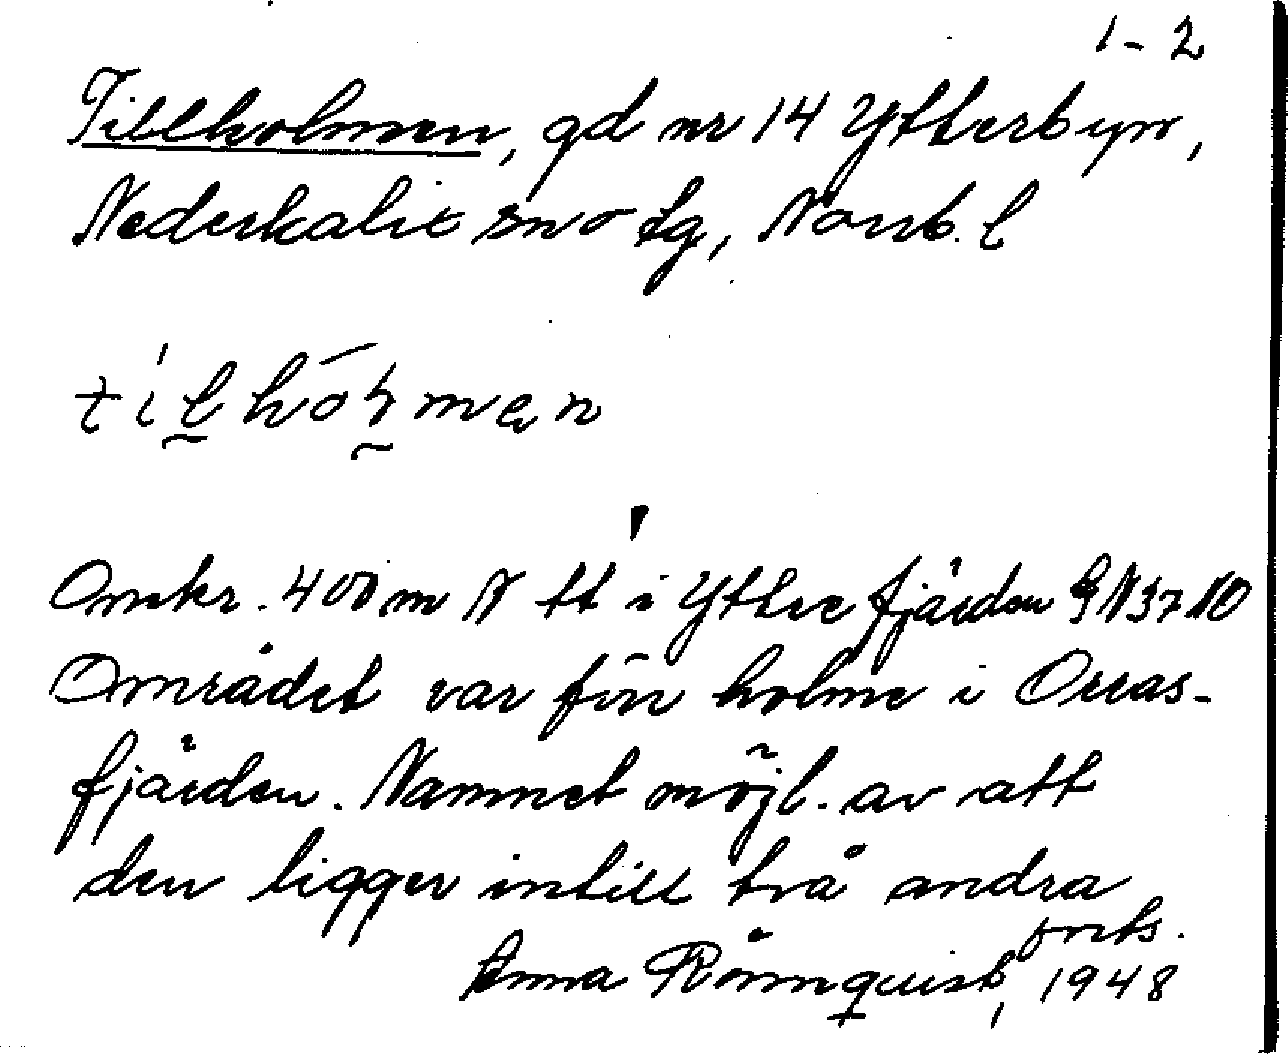 1-2
Tillholmen, gd nr 14 Ytterbyn,
Nederkalix sn o tg, Norrb. l
Omkr. 400 m N tt i Yttre fjärden 9 N 37 NO
Området var förr holme i Orras-
fjärden. Namnet möjl. av att
den ligger intill två andra
forts.
Anna Rönnquist, 1948